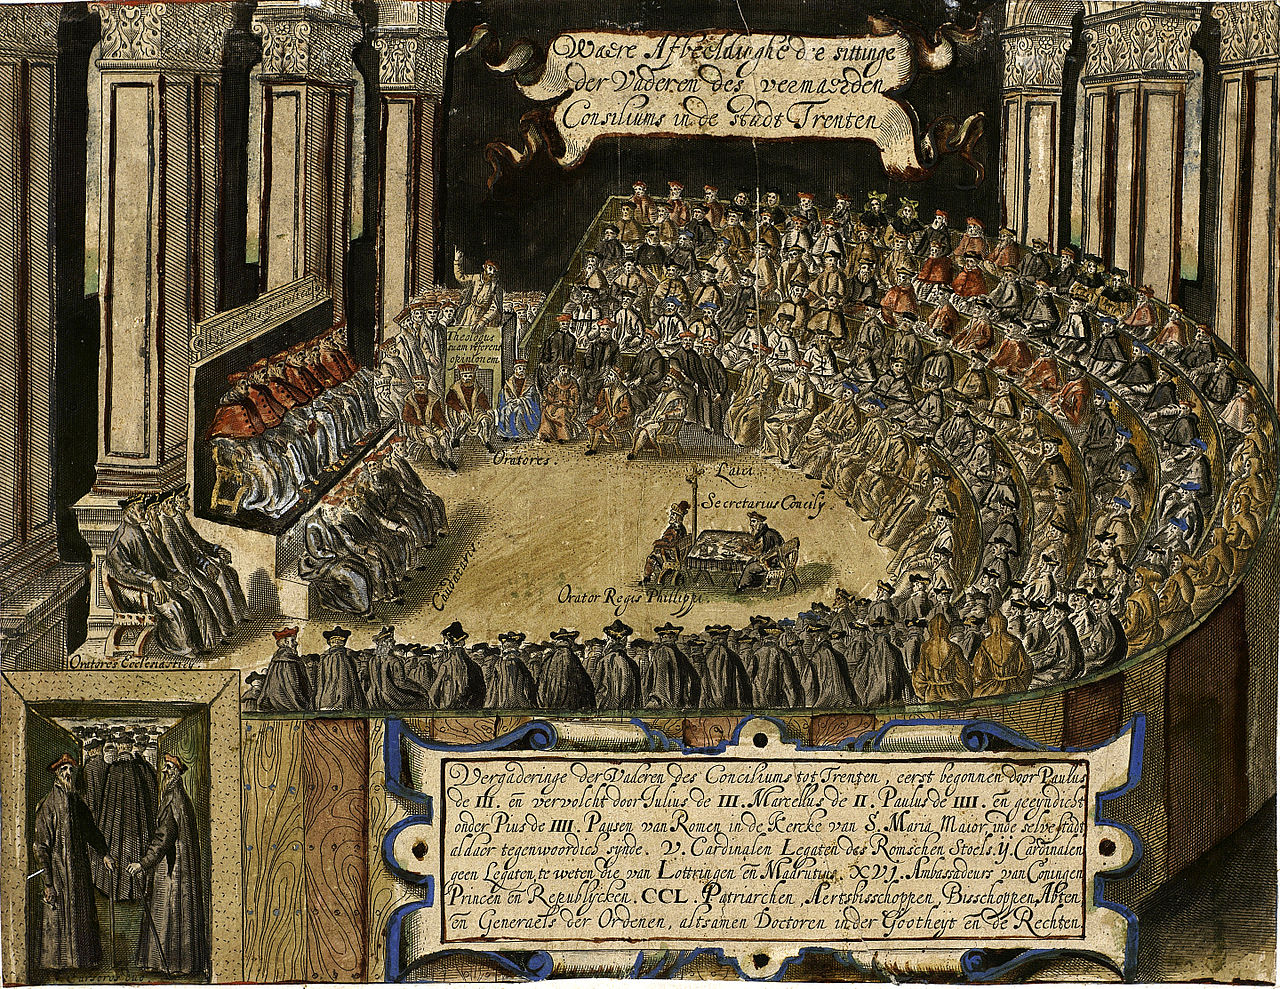 Waere Afbeeldinghe die sittinge
der Vaderen des vermaerden
Consiliums in de Stadt Trenten
Theologus
suam referens
opinionem
Oratores.
Laici
Secretarius Concilÿ.
Orator Regis Phillippi.
Caudatarii
Oratores Ecclesiastici.
Vergaderinge der Vaderen des Conciliums tot Trenten, eerst begonnen door Paulus
de III. en vervolcht door Iulius de III. Marcellus de II. Paulus de IIII. en geeyndicht
onder Pius de IIII. Pausen van Romen in de Kercke van S. Maria Maior inde selve stadt
aldaer tegenwoordich synde. V. Cardinalen Legaten des Romschen Stoels. IJ. Cardinalen
geen Legaten, te weten die van Lottringen en Madrutius. XVI. Ambassadeurs van Coningen
Princen en Republÿcken. CCL. Patriarchen, Aertsbisschoppen, Bisschoppen, Abten,
en Generaels der Ordenen, altsamen Doctoren in der Gootheyt en de Rechten.